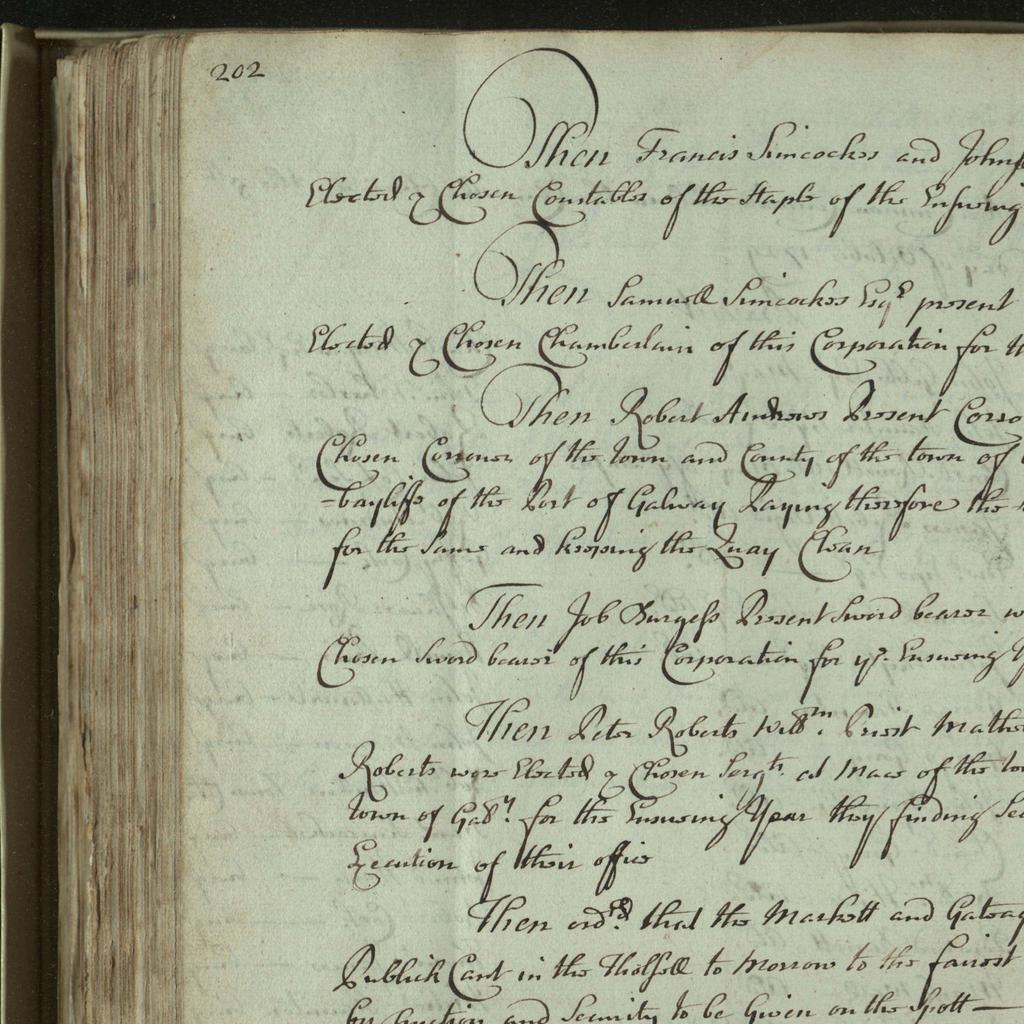 202
Then Francis Simcockes and John
Elected & Chosen Constables of the Staple of the Ensueing
Then Samuell Simcockes Esqr present
Elected & Chosen Chamberlain of this Corporation for
Then Robert Andrews Present Corro
Chosen Corroner of the town and County of the town of
=bayliffe of the Port of Galway Paying therefore the
for the Same and keeping the Quay Clean
Then Job Burgess Present Sword bearer
Chosen Sword bearer of this Corporation for ye. Ensueing
Then Peter Roberts Willm. Priest Mathe
Roberts were Elected & Chosen Sergts. at Mace of the to
town of Gallwy. for the Ensueing Year they finding Sec
Execution of their office
Then ordrd. that the Markett and Gateag
Publick Cant in the Tholsell to Morrow to the fairest
by Auction and Security to be Given on the Spott —